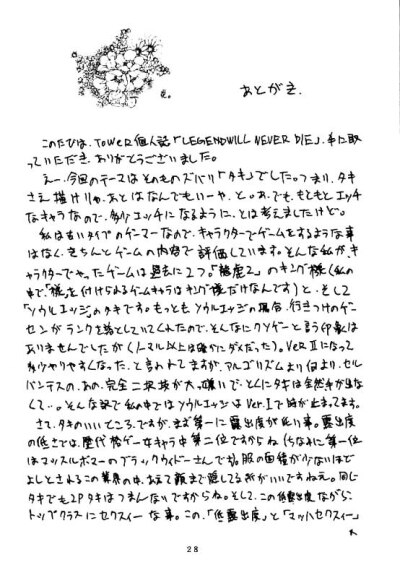 あとがき.
このたびは、TOWER個人誌「LEGENDWILL NEVER DIE」、手に取
っていただき、ありがとうございました。
えー、今回のテーマはそのものズバリ「タキ」でした。つまり、タキ
さえ描けりゃ、あとはなんでもいーや、と。あ、でも、もともとエッチ
なキャラなので、多少エッチになるように、とは考えましたけど。
私は古いタイプのゲーマーなので、キャラクターでゲームをするような事
はなく、きちんとゲームの内容で評価しています。そんな私が、キ
ャラクターでやったゲームは過去に2つ。「餓狼2」のキング様(私の
中で、「様」を付けられるゲームキャラはキング様だけなんです)と、そして
「ソウルエッジ」のタキです。もっともソウルエッジの場合、行きつけのゲー
センがランクを落としていてくれたので、そんなにクソゲーと言う印象は
ありませんでしたが(ノーマル以上は確かにダメだった)。Ver.Ⅱになって
多少やりやすくなった、と言われてますが、アルゴリズムより何より、セル
バンテスの、あの、完全二択技が大っ嫌いで、とくにタキは全然手が出な
くて…。そんな訳で私の中ではソウルエッジはVer.Ⅰで時が止まってます。
さて、タキのいいところ、ですが、まず第一に露出度が低い事。露出度
の低さでは、歴代格ゲー女キャラ中第二位ですからね(ちなみに第一位
はマッスルボマーのブラックウィドーさんです)。服の面積が少ないほど
よしとされるこの業界の中、あえて顔まで隠してる所がいいですねえ。同じ
タキでも2Pタキはつまんないですからね。そして、この低露出度ながらに
トップクラスにセクスィーな事。この、「低露出度」と「マッハセクスィー」
28